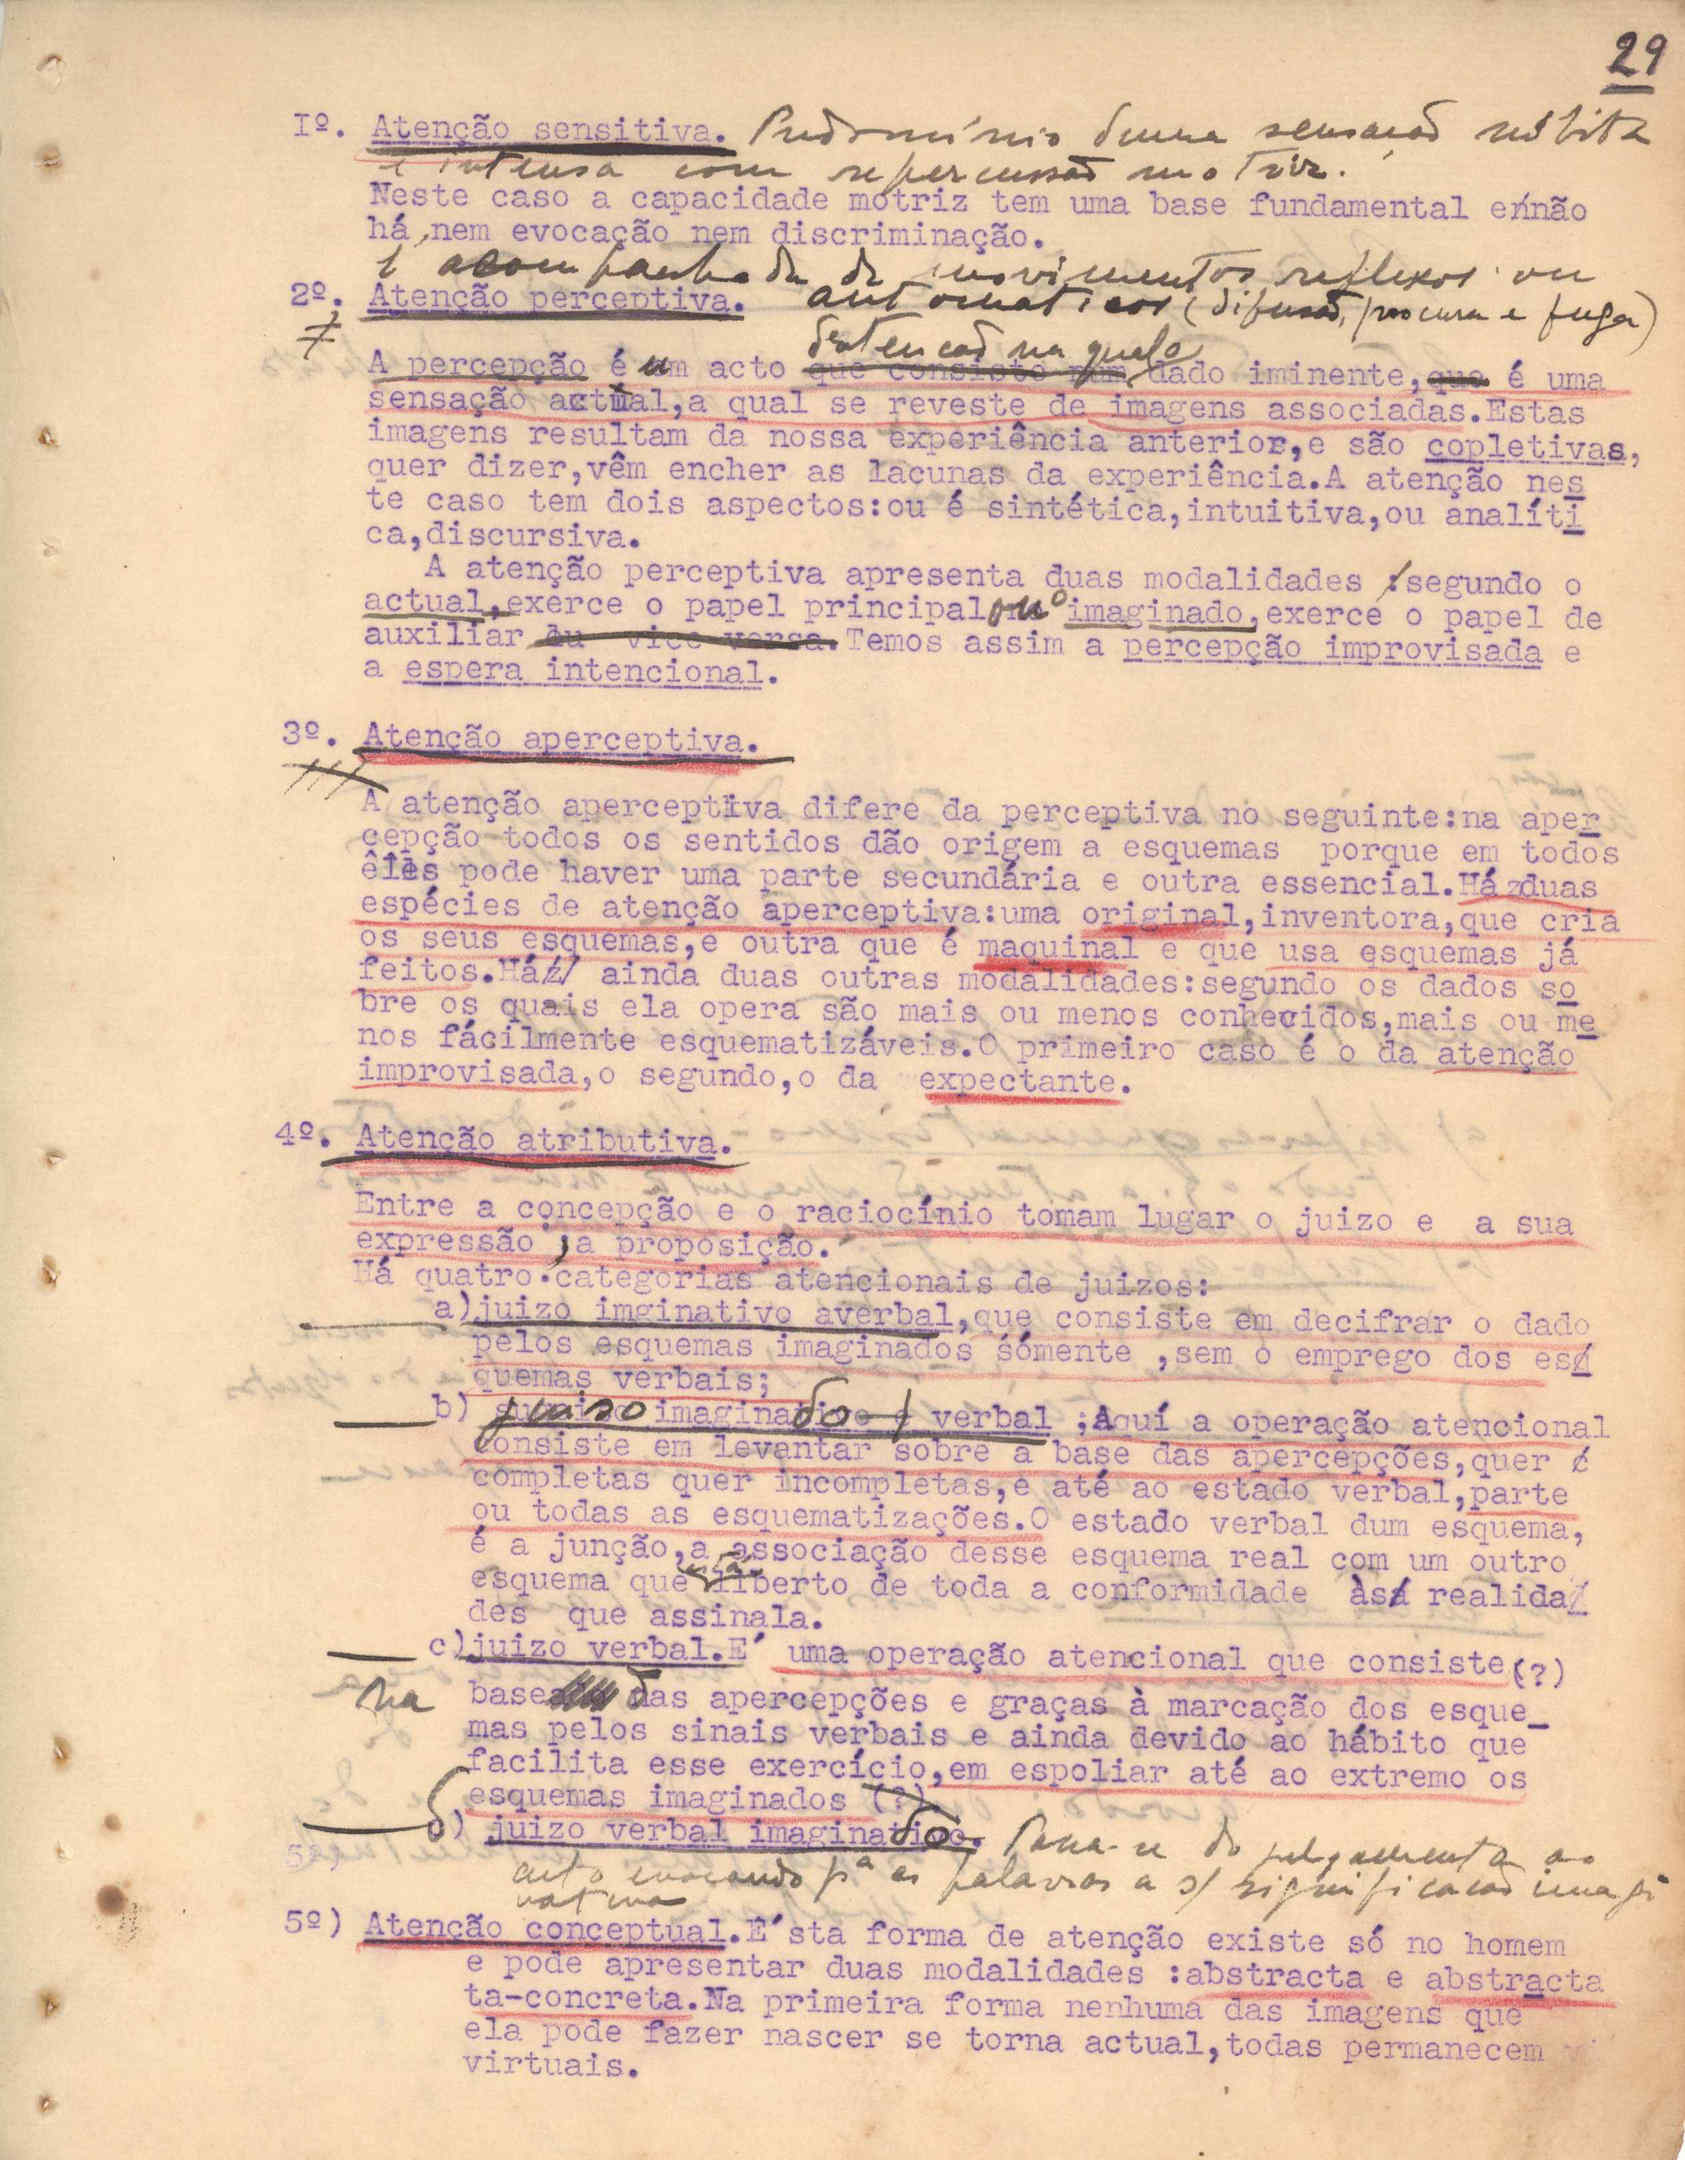 29
Iº. Atenção sensitiva. Predomínio duma sensação súbita
e intensa com repercussão motriz.
Neste caso a capacidade motriz tem uma base fundamental e não
há nem evocação nem discriminação.
É acompanhada de movimentos reflexos ou
2º. Atenção perceptiva. automaticos (difusão, procura e fuga)
da atencão na qual o
A percepção é um acto que consiste num dado iminente, que é uma
sensação actual,a qual se reveste de imagens associadas.Estas
imagens resultam da nossa experiência anterior,e são copletivas,
quer dizer,vêm encher as lacunas da experiência.A atenção nes
te caso tem dois aspectos:ou é sintética,intuitiva,ou analíti
ca,discursiva.
A atenção perceptiva apresenta duas modalidades :segundo o
actual,exerce o papel principal ou o imaginado,exerce o papel de
auxiliar ou vice versa.Temos assim a percepção improvisada e
a espera intencional.
3º. Atenção aperceptiva.
A atenção aperceptiva difere da perceptiva no seguinte:na aper
cepção todos os sentidos dão origem a esquemas porque em todos
êles pode haver uma parte secundária e outra essencial.Há duas
espécies de atenção aperceptiva:uma original,inventora,que cria
os seus esquemas,e outra que é maquinal e que usa esquemas já
feitos.Há ainda duas outras modalidades:segundo os dados so
bre os quais ela opera são mais ou menos conhecidos,mais ou me
nos fácilmente esquematizáveis.O primeiro caso é o da atenção
improvisada,o segundo,o da expectante.
4º. Atenção atributiva.
Entre a concepção e o raciocínio tomam lugar o juizo e a sua
expressão ,a proposição.
Há quatro categorias atencionais de juizos:
a)juizo imginativo averbal,que consiste em decifrar o dado
pelos esquemas imaginados sómente ,sem o emprego dos es
quemas verbais;
b) juiso imaginado verbal ;Aquí a operação atencional
consiste em levantar sobre a base das apercepções,quer
completas quer incompletas,e até ao estado verbal,parte
ou todas as esquematizações.O estado verbal dum esquema,
é a junção,a associação desse esquema real com um outro
esquema que está liberto de toda a conformidade às realida
des que assinala.
c)juizo verbal.E´ uma operação atencional que consiste(?)
na base das apercepções e graças à marcação dos esque_
mas pelos sinais verbais e ainda devido ao hábito que
facilita esse exercício,em espoliar até ao extremo os
esquemas imaginados (?).
d) juizo verbal imaginado. Passa-se do julgamento ao
acto evocando pª as palavras a s/ significacão imagi
nativa
5º) Atenção conceptual.E´sta forma de atenção existe só no homem
e pode apresentar duas modalidades :abstracta e abstracta
ta-concreta.Na primeira forma nenhuma das imagens que
ela pode fazer nascer se torna actual,todas permanecem
virtuais.